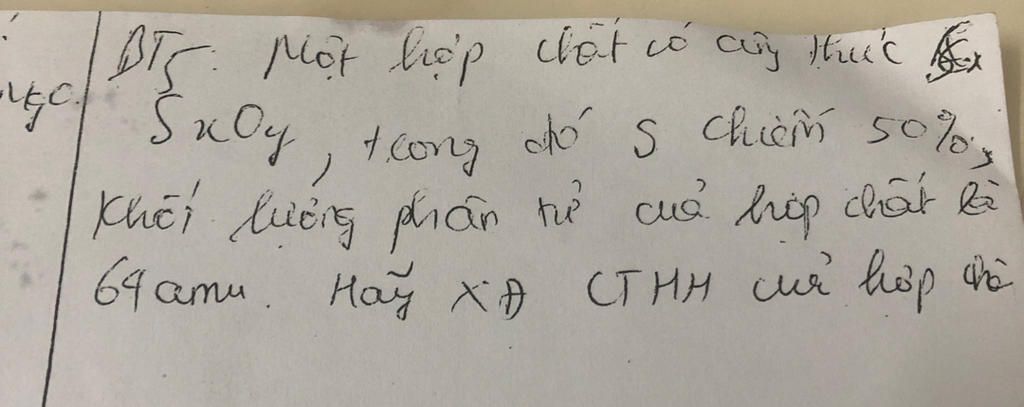 BT5: Một hợp chất có công thức
SxOy, trong đó S chiếm 50%,
khối lượng phân tử của hợp chất là
64 amu. Hãy XĐ CTHH của hợp